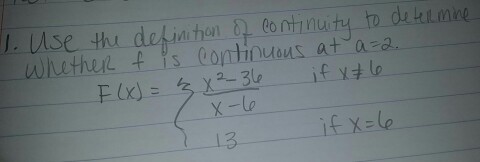 1. Use the definition of continuity to determine
whether f is continuous at a=2.
F(x) = { x²-36 / x-6 if x≠6
13 if x=6